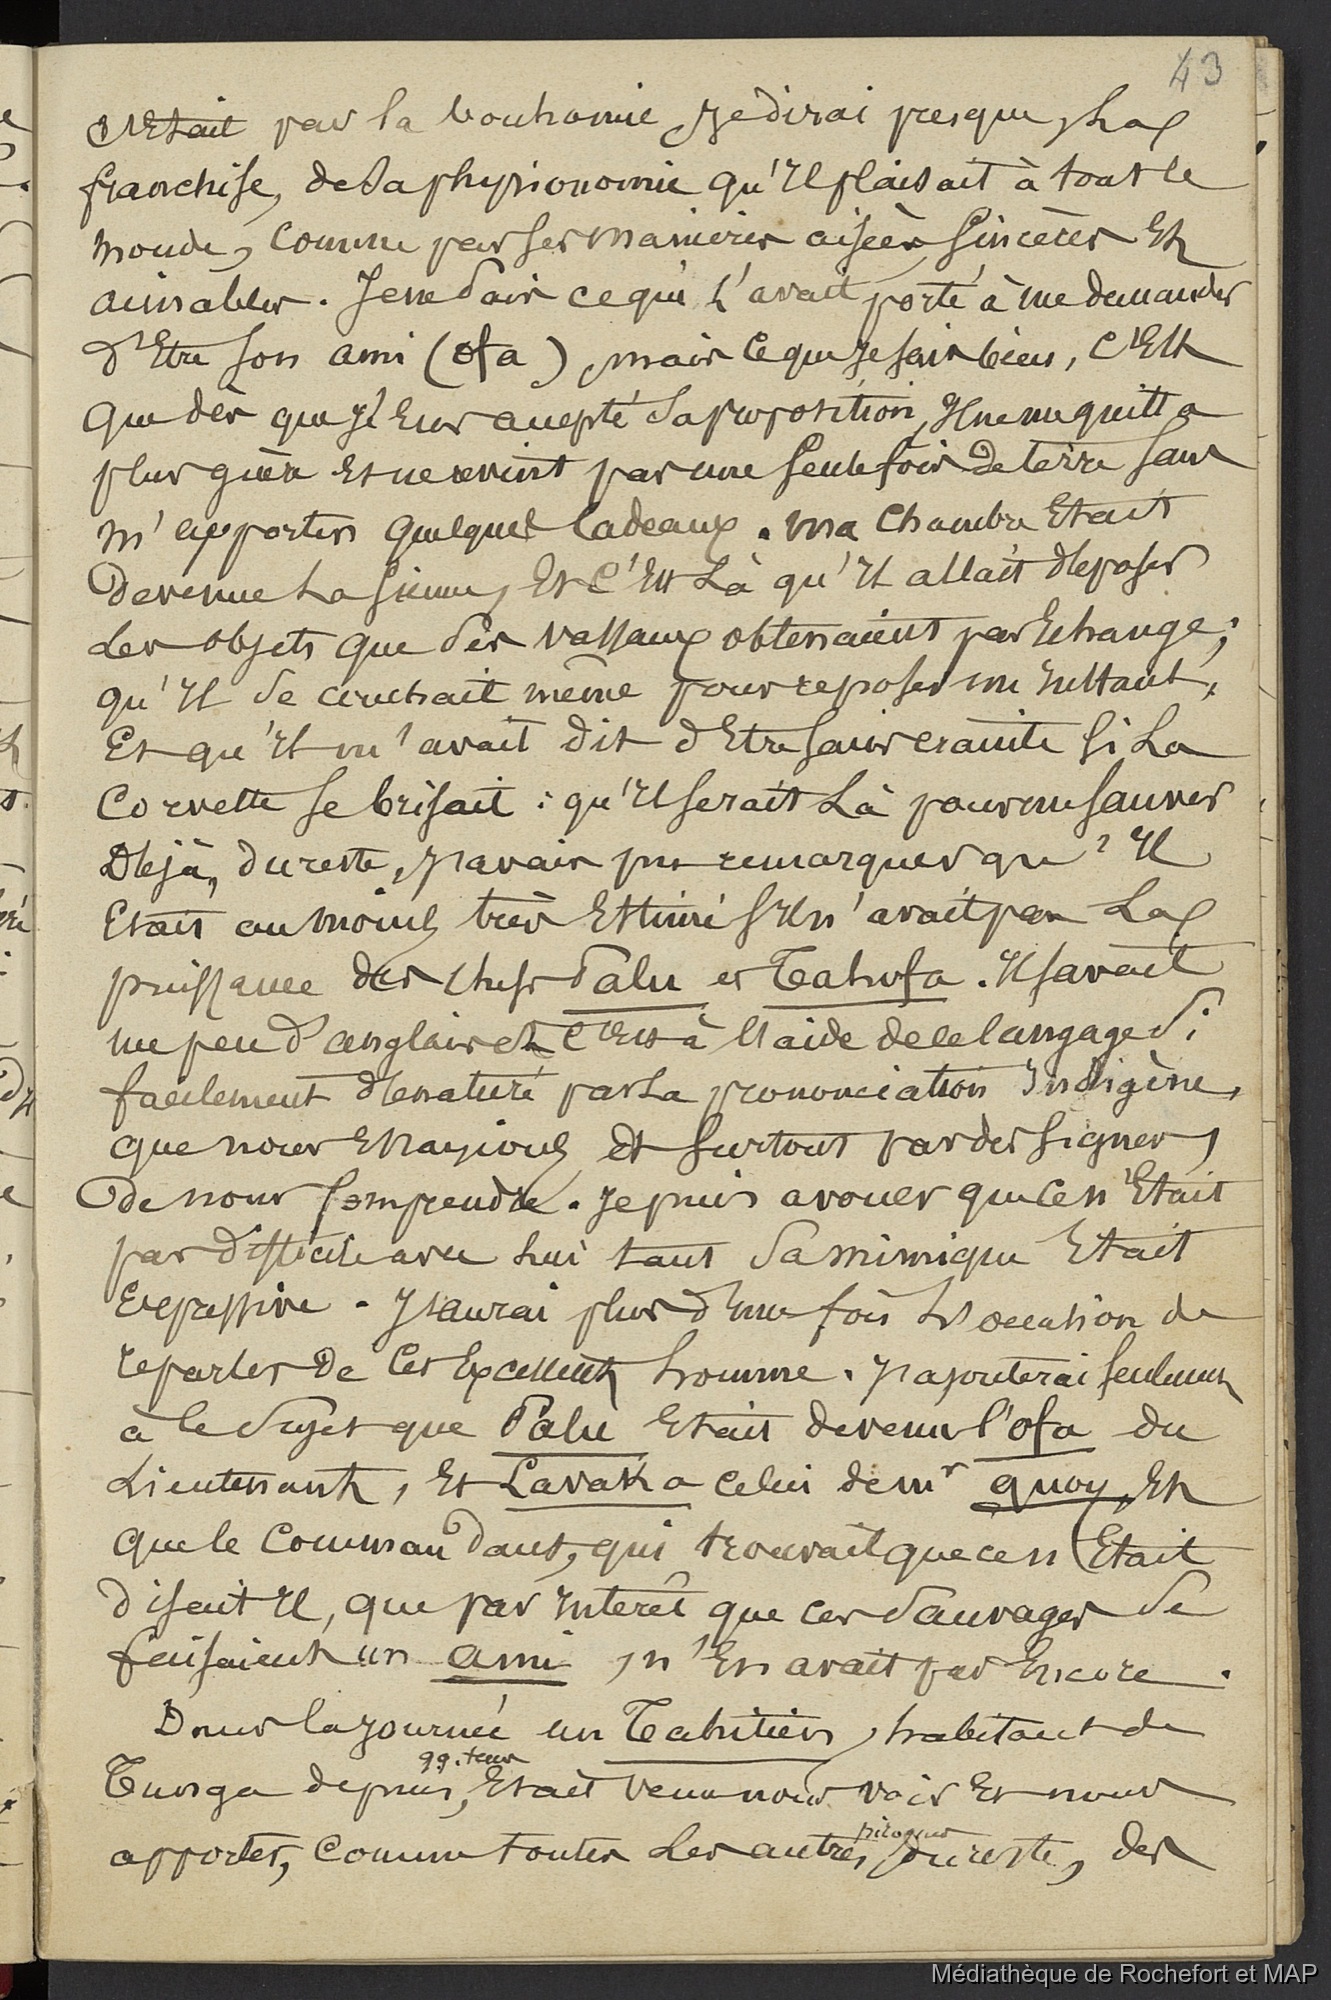 43
C'Etait par la bonhomie, Je dirai presque, La
franchise, de Sa physionomie qu'Il plaisait à tout le
monde, comme par ses manières aisées, sincères Et
aimables. Je ne Sais ce qui L'avait porté à me demander
d'Etre son ami (ofa), mais ce que Je sais bien, C'Est
que dès que J'Eus accepté Sa proposition, Il ne me quitta
plus guère Et ne revint pas une seule fois de terre sans
m'apporter quelques Cadeaux. ma Chambre Etait
devenue La sienne, Et C'Est Là qu'Il allait déposer
Les objets que Ses vassaux obtenaient par Echange;
qu'Il Se couchait même pour reposer un Instant,
Et qu'Il m'avait dit d'Etre sans crainte si La
Corvette se brisait : qu'Il serait Là pour me sauver
Déjà, du reste, J'avais pu remarquer qu'Il
Etait au moins très Estimé s'Il n'avait pas La
puissance des chefs Palu et Tahofa. Il savait
un peu d'anglais et C'Est à L'aide de ce langage Si
facilement dénaturé par La prononciation Indigène,
que nous Essayions, et surtout par des signes,
de nous comprendre. Je puis avouer que ce n'Etait
pas difficile avec Lui tant Sa mimique Etait
Expressive. J'aurai plus d'une fois L'occasion de
reparler de Cet Excellent homme. J'ajouterai seulement
à ce Sujet que Palu Etait devenu l'ofa du
Lieutenant, Et Lavaka celui de mr quoy, Et
que le Commandant, qui trouvait que ce n'Etait
disait Il, que par Intérêt que ces Sauvages Se
faisaient un ami, n'En avait pas Encore.
Dans la journée un Tahitien, habitant de
Tonga depuis qq. tems, Etait venu nous voir Et nous
apporter, Comme toutes Les autres pirogues du reste, des
Médiathèque de Rochefort et MAP